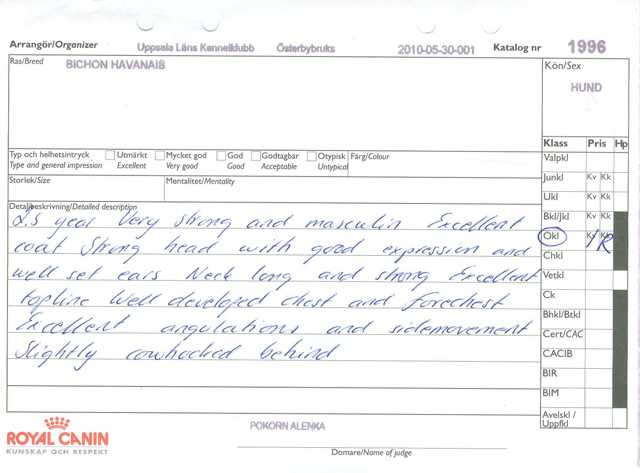 Arrangör/Organizer Uppsala Läns Kennelklubb Österbybruks 2010-05-30-001 Katalog nr 1996
Ras/Breed BICHON HAVANAIS Kön/Sex
HUND
Klass Pris Hp
Typ och helhetsintryck Utmärkt Mycket god God Godtagbar Otypisk Färg/Colour Valpkl
Type and general impression Excellent Very good Good Acceptable Untypical
Storlek/Size Mentalitet/Mentality Junkl Kv Kk
Ukl Kv Kk
Detaljbeskrivning/Detailed description
2.5 year Very strong and masculin Excellent Bkl/Jkl Kv Kk
coat Strong head with good expression and Ökl Kv Kk
well set ears Neck long and strong Excellent Chkl
topline Well developed chest and forechest Vetkl
Ck
Excellent angulations and sidemovement Bhkl/Btkl
Slightly cowhocked behind Cert/CAC
CACIB
BIR
BIM
Avelskl/
Uppfkl
ROYAL CANIN
KUNSKAP OCH RESPEKT
POKORN ALENKA
Domare/Name of judge